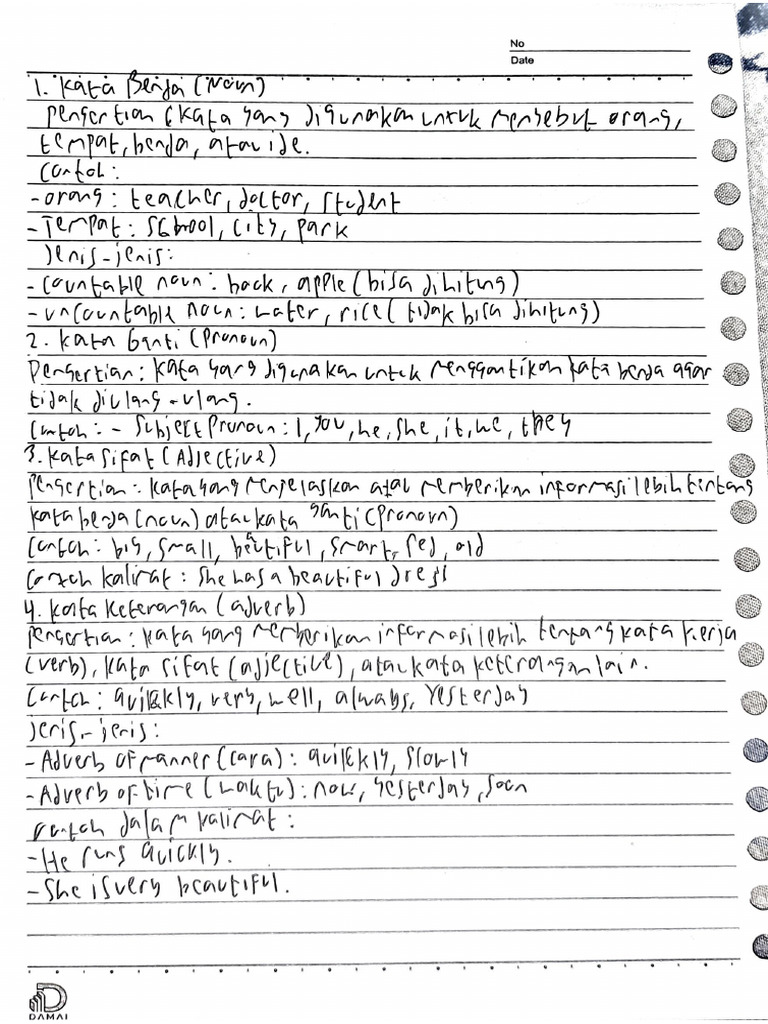 No
Date
1. Kata Benda (Noun)
Pengertian (kata yang digunakan untuk menyebut orang,
tempat, benda, atau ide.
Contoh :
- orang : teacher, doctor, student
- Tempat : School, city, park
Jenis-jenis:
- Countable noun : book, apple (bisa dihitung)
- uncountable noun : water, rice (tidak bisa dihitung)
2. Kata Ganti (Pronoun)
Pengertian : kata yang digunakan untuk menggantikan kata benda agar
tidak diulang-ulang.
Contoh : - Subject Pronoun : I, you, he, she, it, we, they
3. Kata Sifat (Adjective)
Pengertian : kata yang menjelaskan atau memberikan informasi lebih tentang
kata benda (noun) atau kata ganti (Pronoun)
Contoh : big, small, beautiful, smart, red, old
Contoh kalimat : She has a beautiful dress
4. Kata Keterangan (adverb)
Pengertian : kata yang memberikan informasi lebih tentang kata kerja
(verb), kata sifat (adjective), atau kata keterangan lain.
Contoh : quickly, very, well, always, Yesterday
Jenis-jenis :
- Adverb of manner (cara) : quickly, slowly
- Adverb of time (waktu) : now, yesterday, soon
contoh dalam kalimat :
- He runs quickly.
- She is very beautiful.
DAMAI